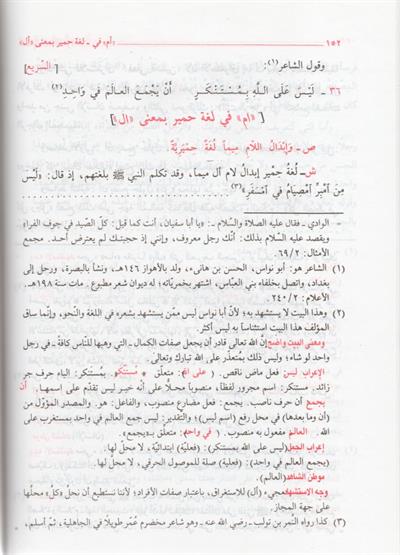 ١٥٢ «أم» في - لغة حمير بمعنى «أل»
وقول الشاعر(١): [السريع]
٣٦ - لَيْسَ عَلَى اللَّهِ بِمُسْتَنْكَرٍ أَنْ يَجْمَعَ العالَمَ في وَاحِدِ(٢)
[«ام» في لغة حمير بمعنى «ال»]
ص - وَإِبْدَالُ اللَّامِ مِيماً لُغَةٌ حِمْيَرِيَّةٌ.
ش - لُغَةُ حِمْيَر إبدالُ لام أل ميماً، وقد تكلم النبي ﷺ بلغتهم، إذ قال: «لَيْسَ
مِنَ امْبِرِّ امْصِيَامُ في امْسَفَرِ»(٣).
= الوادي - فقال عليه الصلاة والسلام -: «يا أبا سفيان، أنت كما قيل: كلّ الصّيد في جوف الفرا»
ويقصد عليه السلام بذلك: أنّك رجل معروف، وإنني إذ حجبتك لم يعترض أحد. مجمع
الأمثال: ٦٩/٢.
(١) الشاعر هو: أبو نواس، الحسن بن هانىء، ولد بالأهواز ١٤٦هـ، ونشأ بالبصرة، ورحل إلى
بغداد، واتصل بخلفاء بني العبّاس، اشتهر بخمريّاته؛ له ديوان شعر مطبوع. مات سنة ١٩٨هـ.
الأعلام: ٢٤٠/٢.
(٢) وهذا البيت لا يستشهد به؛ لأنّ أبا نواس ليس ممّن يستشهد بشعره في اللغة والنّحو، وإنّما ساق
المؤلف هذا البيت استئناساً به ليس أكثر.
ومعنى البيت واضح: إنّ الله تعالى قادر أن يجعل صفات الكمال - التي وهبها للنّاس كافة - في رجل
واحد لو شاء؛ وليس ذلك بمُتعذّر على الله تبارك وتعالى.
الإعراب ليس: فعل ماض ناقص. (على الله): متعلّق «مُسْتَنْكَر». بمستنكر: الباء حرف جر
زائد. مستنكر: اسم مجرور لفظاً، منصوبٌ محلّاً على أنّه خبر ليس تقدّم على اسمها. أن
يجمع: أن حرف ناصب. يجمع: فعل مضارع منصوب، والفاعل: هو. والمصدر المؤوّل من
(أن وما بعدها) في محل رفع (اسم ليس)؛ والتقدير: ليس جمع العالم في واحد بمستغرب على
الله. العالم: مفعول به منصوب. (في واحد): متعلّق بـ«يجمع».
إعراب الجمل: (ليس على الله بمستنكر): (فعليّة) ابتدائية، لا محلّ لها.
(يجمع العالم في واحد): (فعلية) صلة للموصول الحرفي، لا محلّ لها.
موطن الشاهد: (العالم).
وجه الاستشهاد: مجيء (أل) للاستغراق، باعتبار صفات الأفراد؛ لأننا نستطيع أن نحلّ «كلّ» محلّها
على جهة المجاز.
(٣) كذا رواه النّمر بن تولب - رضي الله عنه - وهو شاعر مخضرم عُمّر طويلاً في الجاهلية، ثم أسلم، =